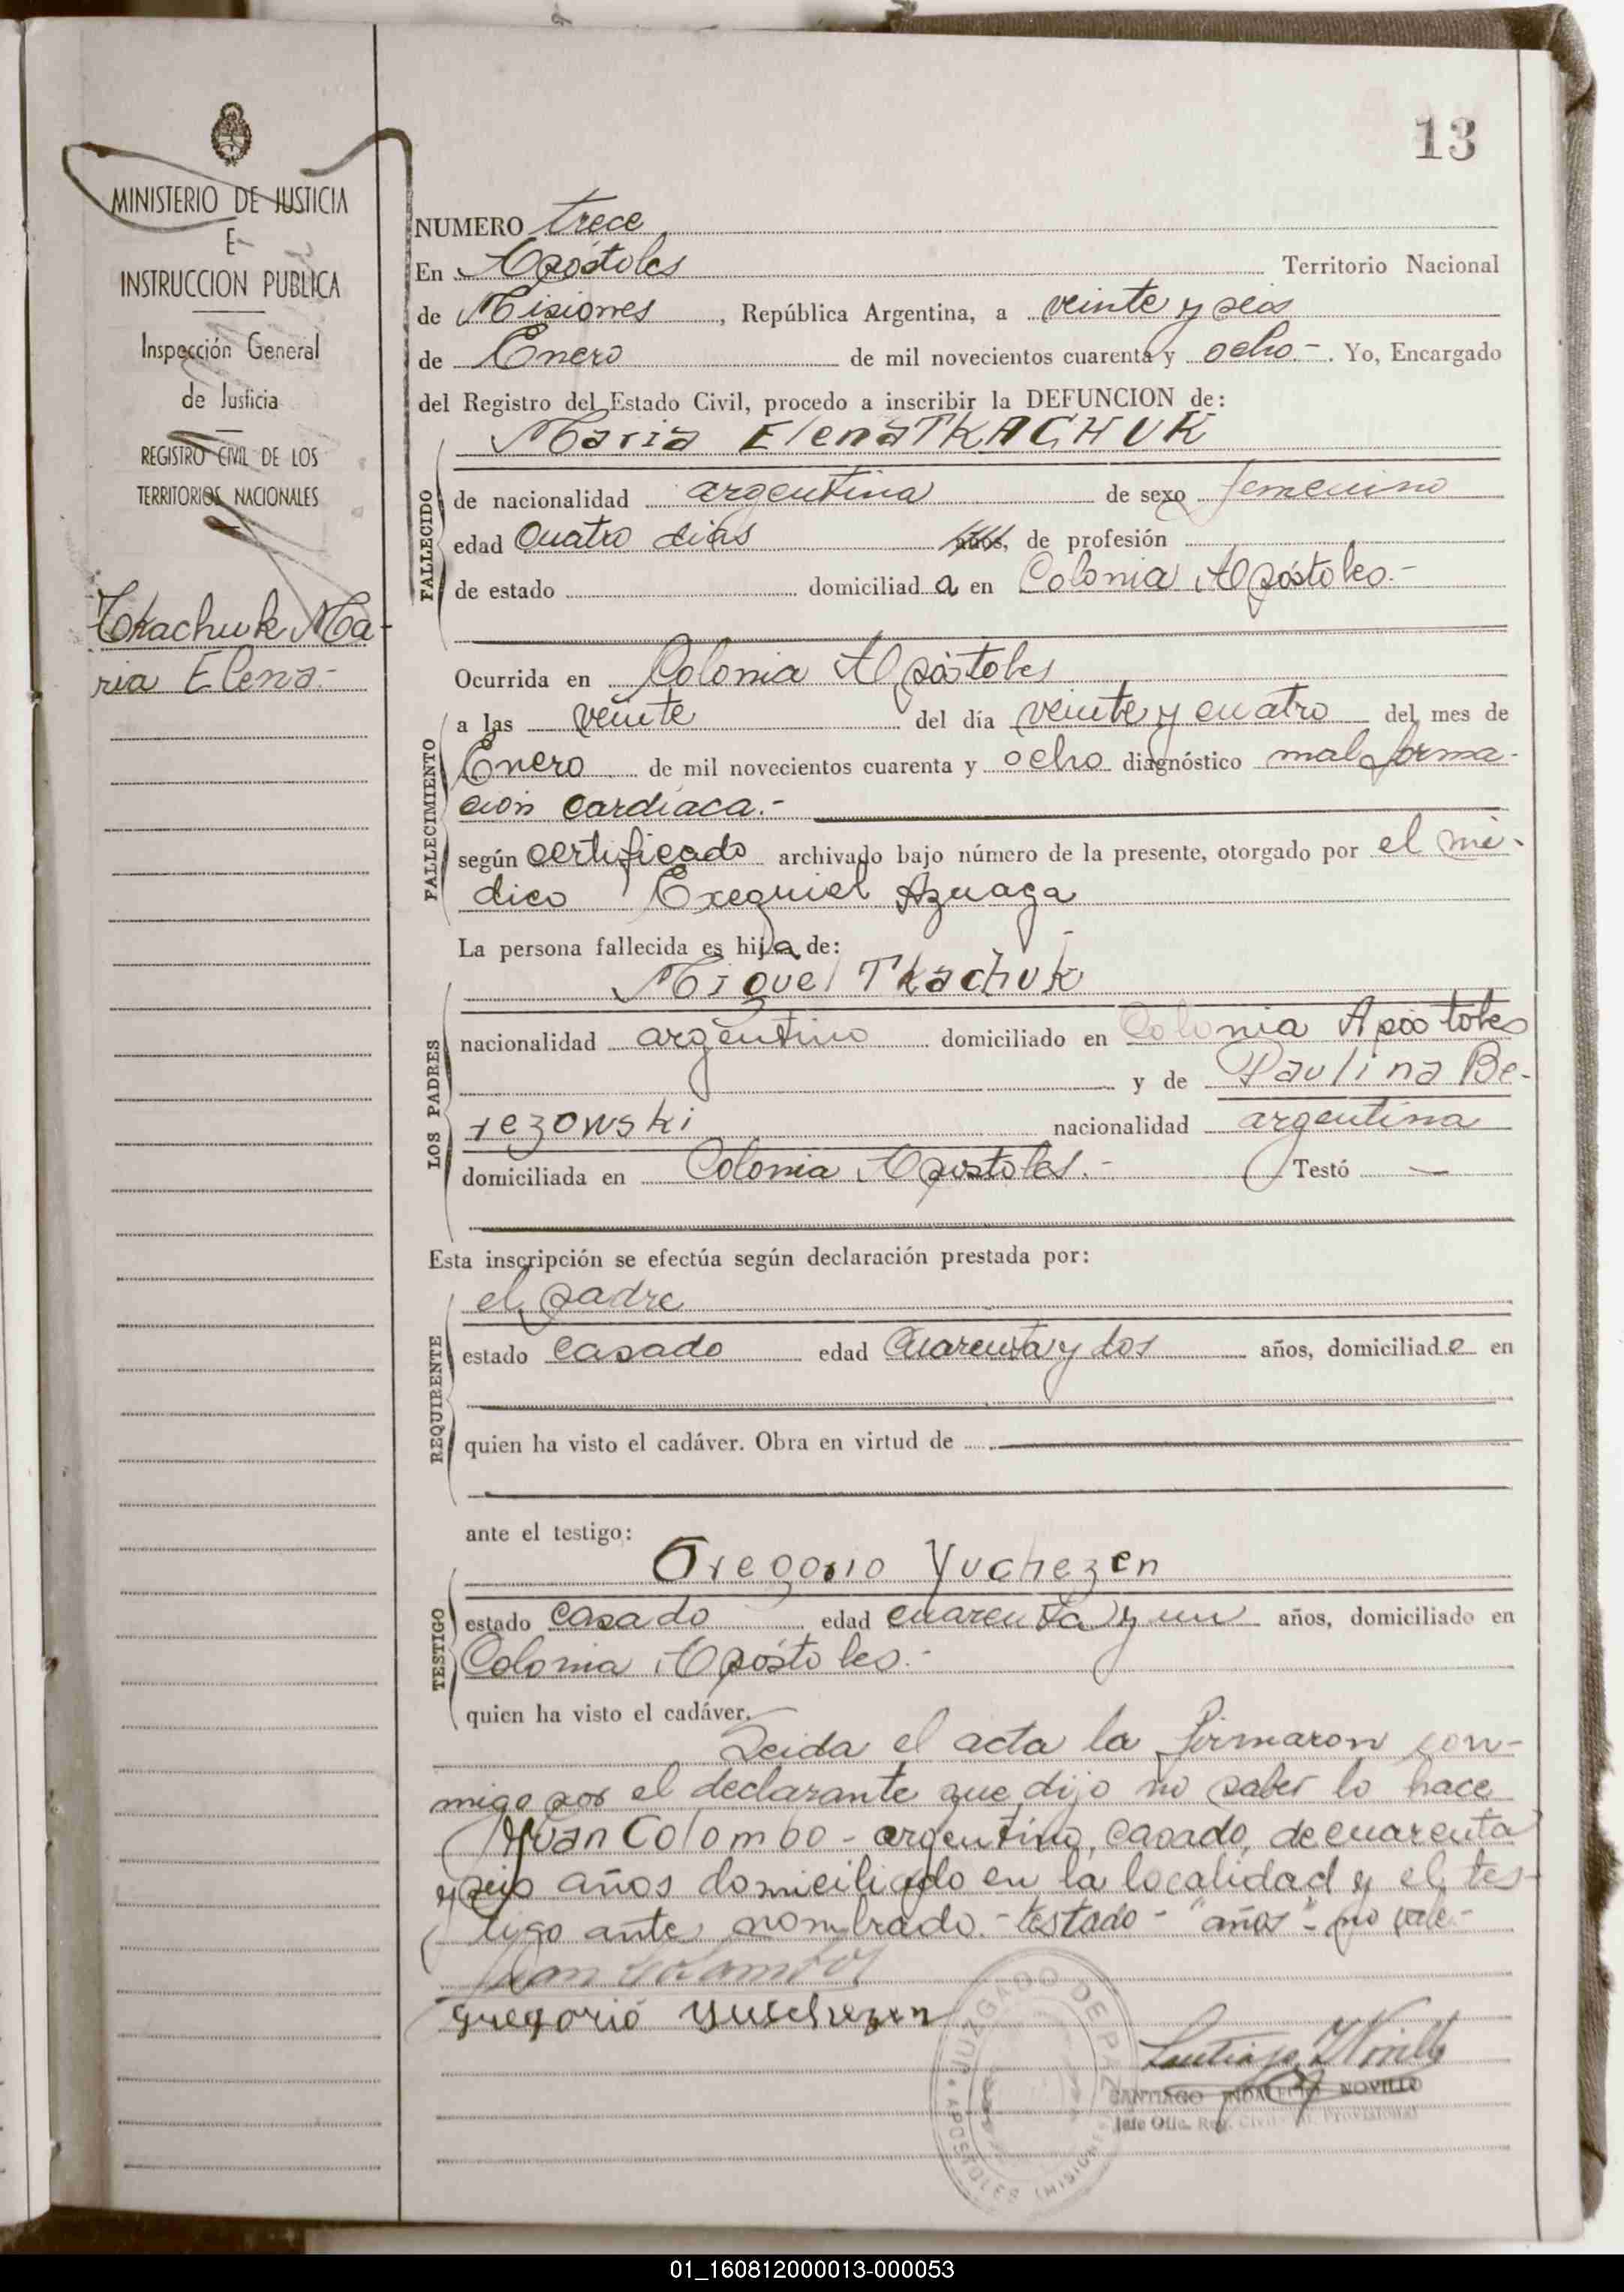 13
MINISTERIO DE JUSTICIA
E
INSTRUCCION PUBLICA
Inspección General
de Justicia
REGISTRO CIVIL DE LOS
TERRITORIOS NACIONALES
Tkachuk Ma-
ria Elena.-
NUMERO trece
En Apóstoles Territorio Nacional
de Misiones, República Argentina, a veinte y seis
de Enero de mil novecientos cuarenta y ocho.-. Yo, Encargado
del Registro del Estado Civil, procedo a inscribir la DEFUNCION de:
Maria Elena TKACHUK
FALLECIDO
de nacionalidad argentina de sexo femenino
edad cuatro dias años, de profesión
de estado domiciliada en Colonia Apóstoles.-
Ocurrida en Colonia Apóstoles
FALLECIMIENTO
a las veinte del día veinte y cuatro del mes de
Enero de mil novecientos cuarenta y ocho diagnóstico malforma-
ción cardíaca.-
según certificado archivado bajo número de la presente, otorgado por el mé-
dico Exequiel Azuaga
La persona fallecida es hija de:
LOS PADRES
Miguel Tkachuk
nacionalidad argentino domiciliado en Colonia Apóstoles
y de Paulina Be-
rezowski nacionalidad argentina
domiciliada en Colonia Apostoles.- Testó —
Esta inscripción se efectúa según declaración prestada por:
REQUIRENTE
el padre
estado casado edad cuarenta y dos años, domiciliado en
quien ha visto el cadáver. Obra en virtud de
ante el testigo:
TESTIGO
Gregorio Yuchezen
estado casado edad cuarenta y un años, domiciliado en
Colonia Apóstoles.-
quien ha visto el cadáver.
Leida el acta la firmaron con-
migo por el declarante que dijo no saber lo hace
Juan Colombo - argentino, casado, de cuarenta
y seis años domiciliado en la localidad y el tes-
tigo ante nombrado.- testado - "años" - no vale.-
Juan Colombo
gregorio yuschezen
JUZGADO DE PAZ
APOSTOLES (MISIONES)
Santiago I Novillo
SANTIAGO INDALECIO NOVILLO
Jefe Ofic. Reg. Civil Provisional
01_160812000013-000053